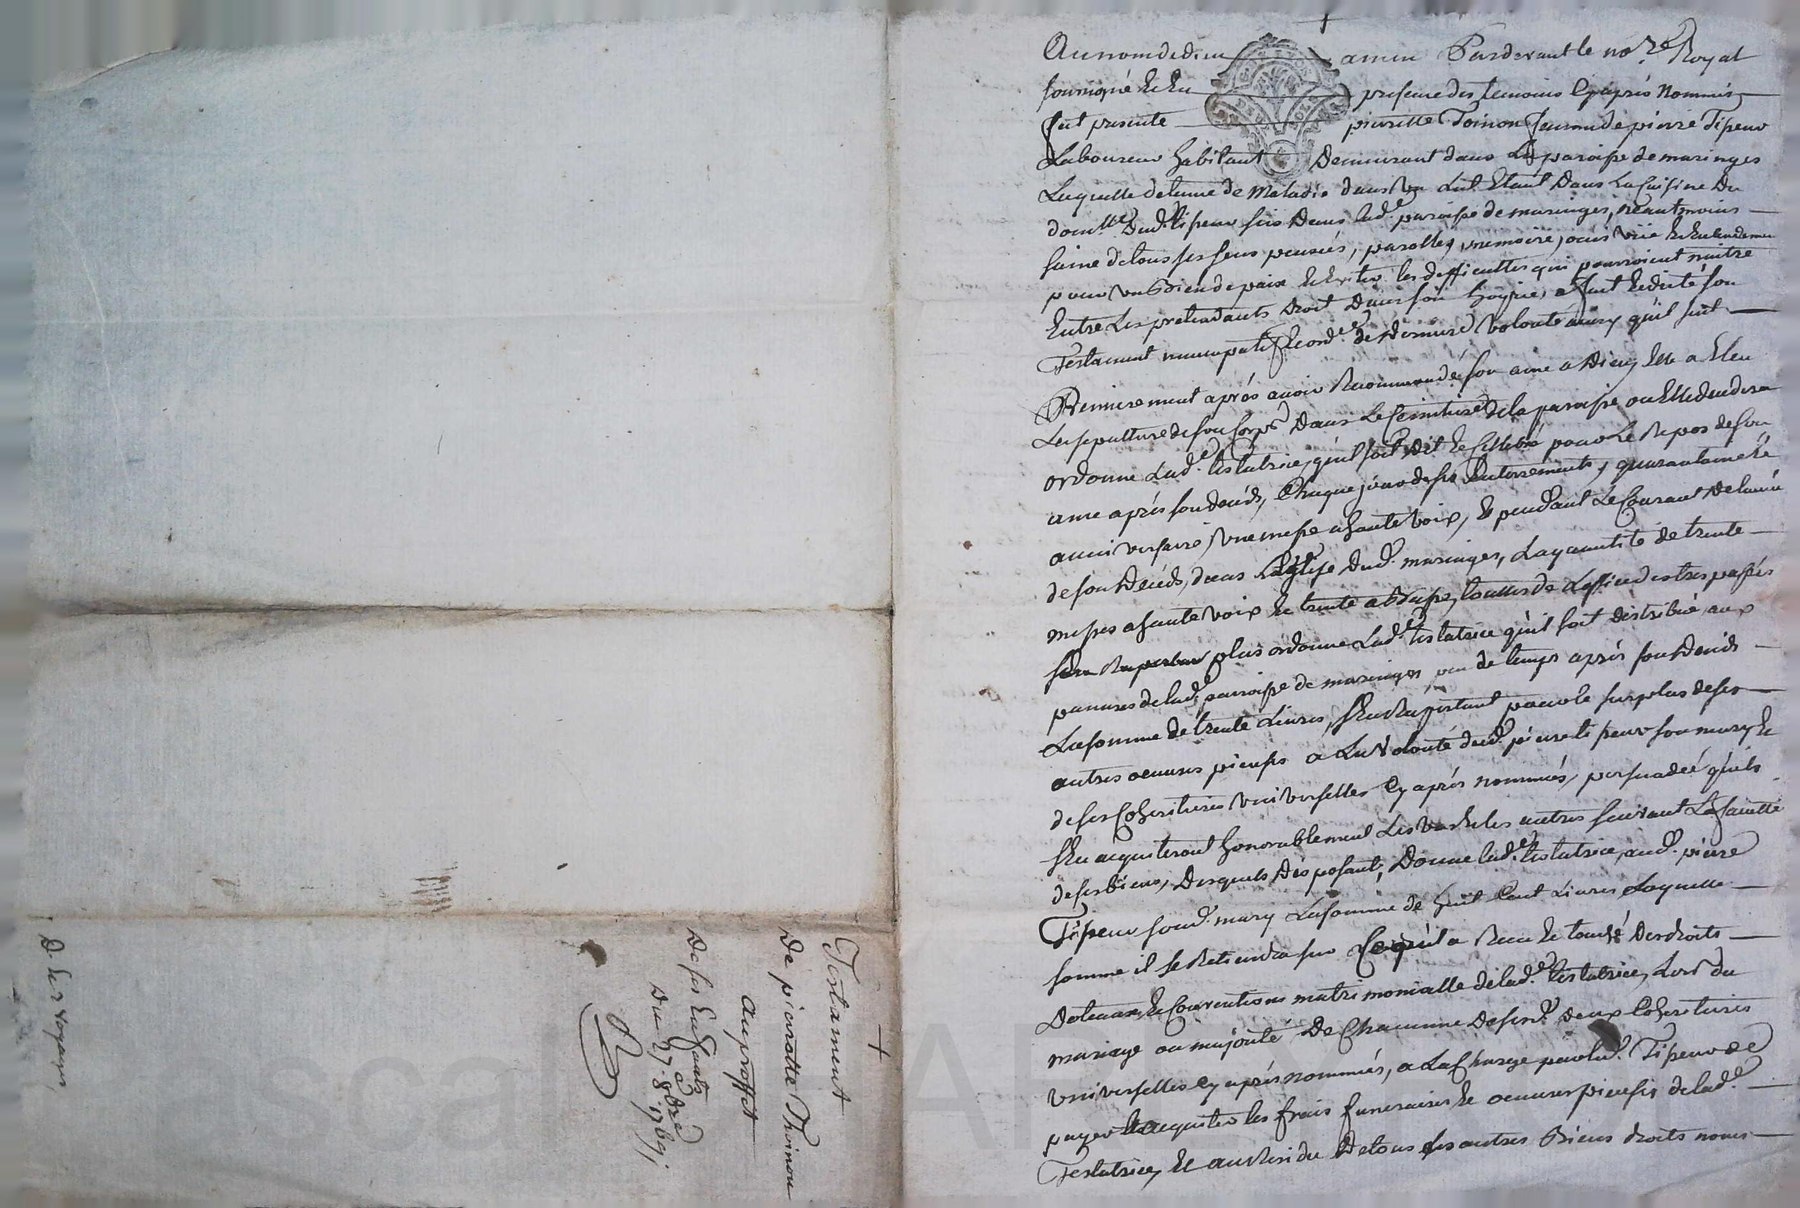 Au nom de dieu amen Pardevant le no.re Royal
soussigné Et En presence des temoins Cyaprés Nommés
fut presente pierrette Toinon femme de pierre Tipeur
Laboureur habitant Demeurant dans La paroisse de maringes
Laquelle detenue de Maladie dans Un Lict Etant Dans La Cuisine Du
domlle Dud. tipeur sis Dans lad.e paroisse de maringes, neantmoins
saine de tous ses sens pensées, parolles, memoire, ouis vüe Et Entendemen
pour un Bien de paix Et Eviter les difficultes qui pourroient naitre
Entre Les pretendants Droit Dans son hoirie, a fait Et dicté son
Testament nuncupatif Et ord.e de Derniere Volonté ainsy qu'il suit
Premierement aprés avoir Recommandé son ame a Dieu, Elle a Eleu
La sepulture de son Corps Dans Le Cimitiere de la paroisse ou Elle decedera
ordonne Lad.e testatrice, qu'il soit dit Et Cellebré pour Le Repos de son
ame aprés son decés, Chaque jour de ses Enterrements, quarantaine Et
anniversaire, Une messe a haute Voix, Et pendant Le Courant De lannée
de son Decés, dans L'Eglise Dud. maringes, La quantité de trente
messes a haute voix Et trente a basse, touttes de Loffice des trespassés
plus ordonne Lad.e testatrice qu'il soit distribué, aux
pauvres de lad.e paroisse de maringes, peu de temps aprés son Decés
La somme de trente Livres, S'En Rapportant pour le surplus de ses
autres oeuvres pieuses a La Volonté dud. pierre tipeur son mary Et
de ses Coheritieres Universelles Cy aprés nommées, persuadée qu'ils
S'En acquiteront honorablement Les Uns Et les autres suivant La faculté
de ses biens, Desquels Disposant, Donne Lad.e testatrice, aud. pierre
Tipeur sond. mary La somme de huit Cent Livres Laquelle
somme il se Retiendra sur Ce qu'il a Reçu Et touché Des droits
Dotaux, Et Conventions matrimonialle de lad.e testatrice, Lors du
mariage ou majorité De Chacunne De ses Deux Coheritieres
Universelles Cy aprés nommées, a La Charge par led. Tipeur de
payer Et acquiter les frais funeraires Et oeuvres pieuses de lad.e
Testatrice, Et au Residu De tous ses autres Biens droits noms
Testament
De pierrette Thoinon
au proffet
De ses Enfants
Du 27. 8bre 1769